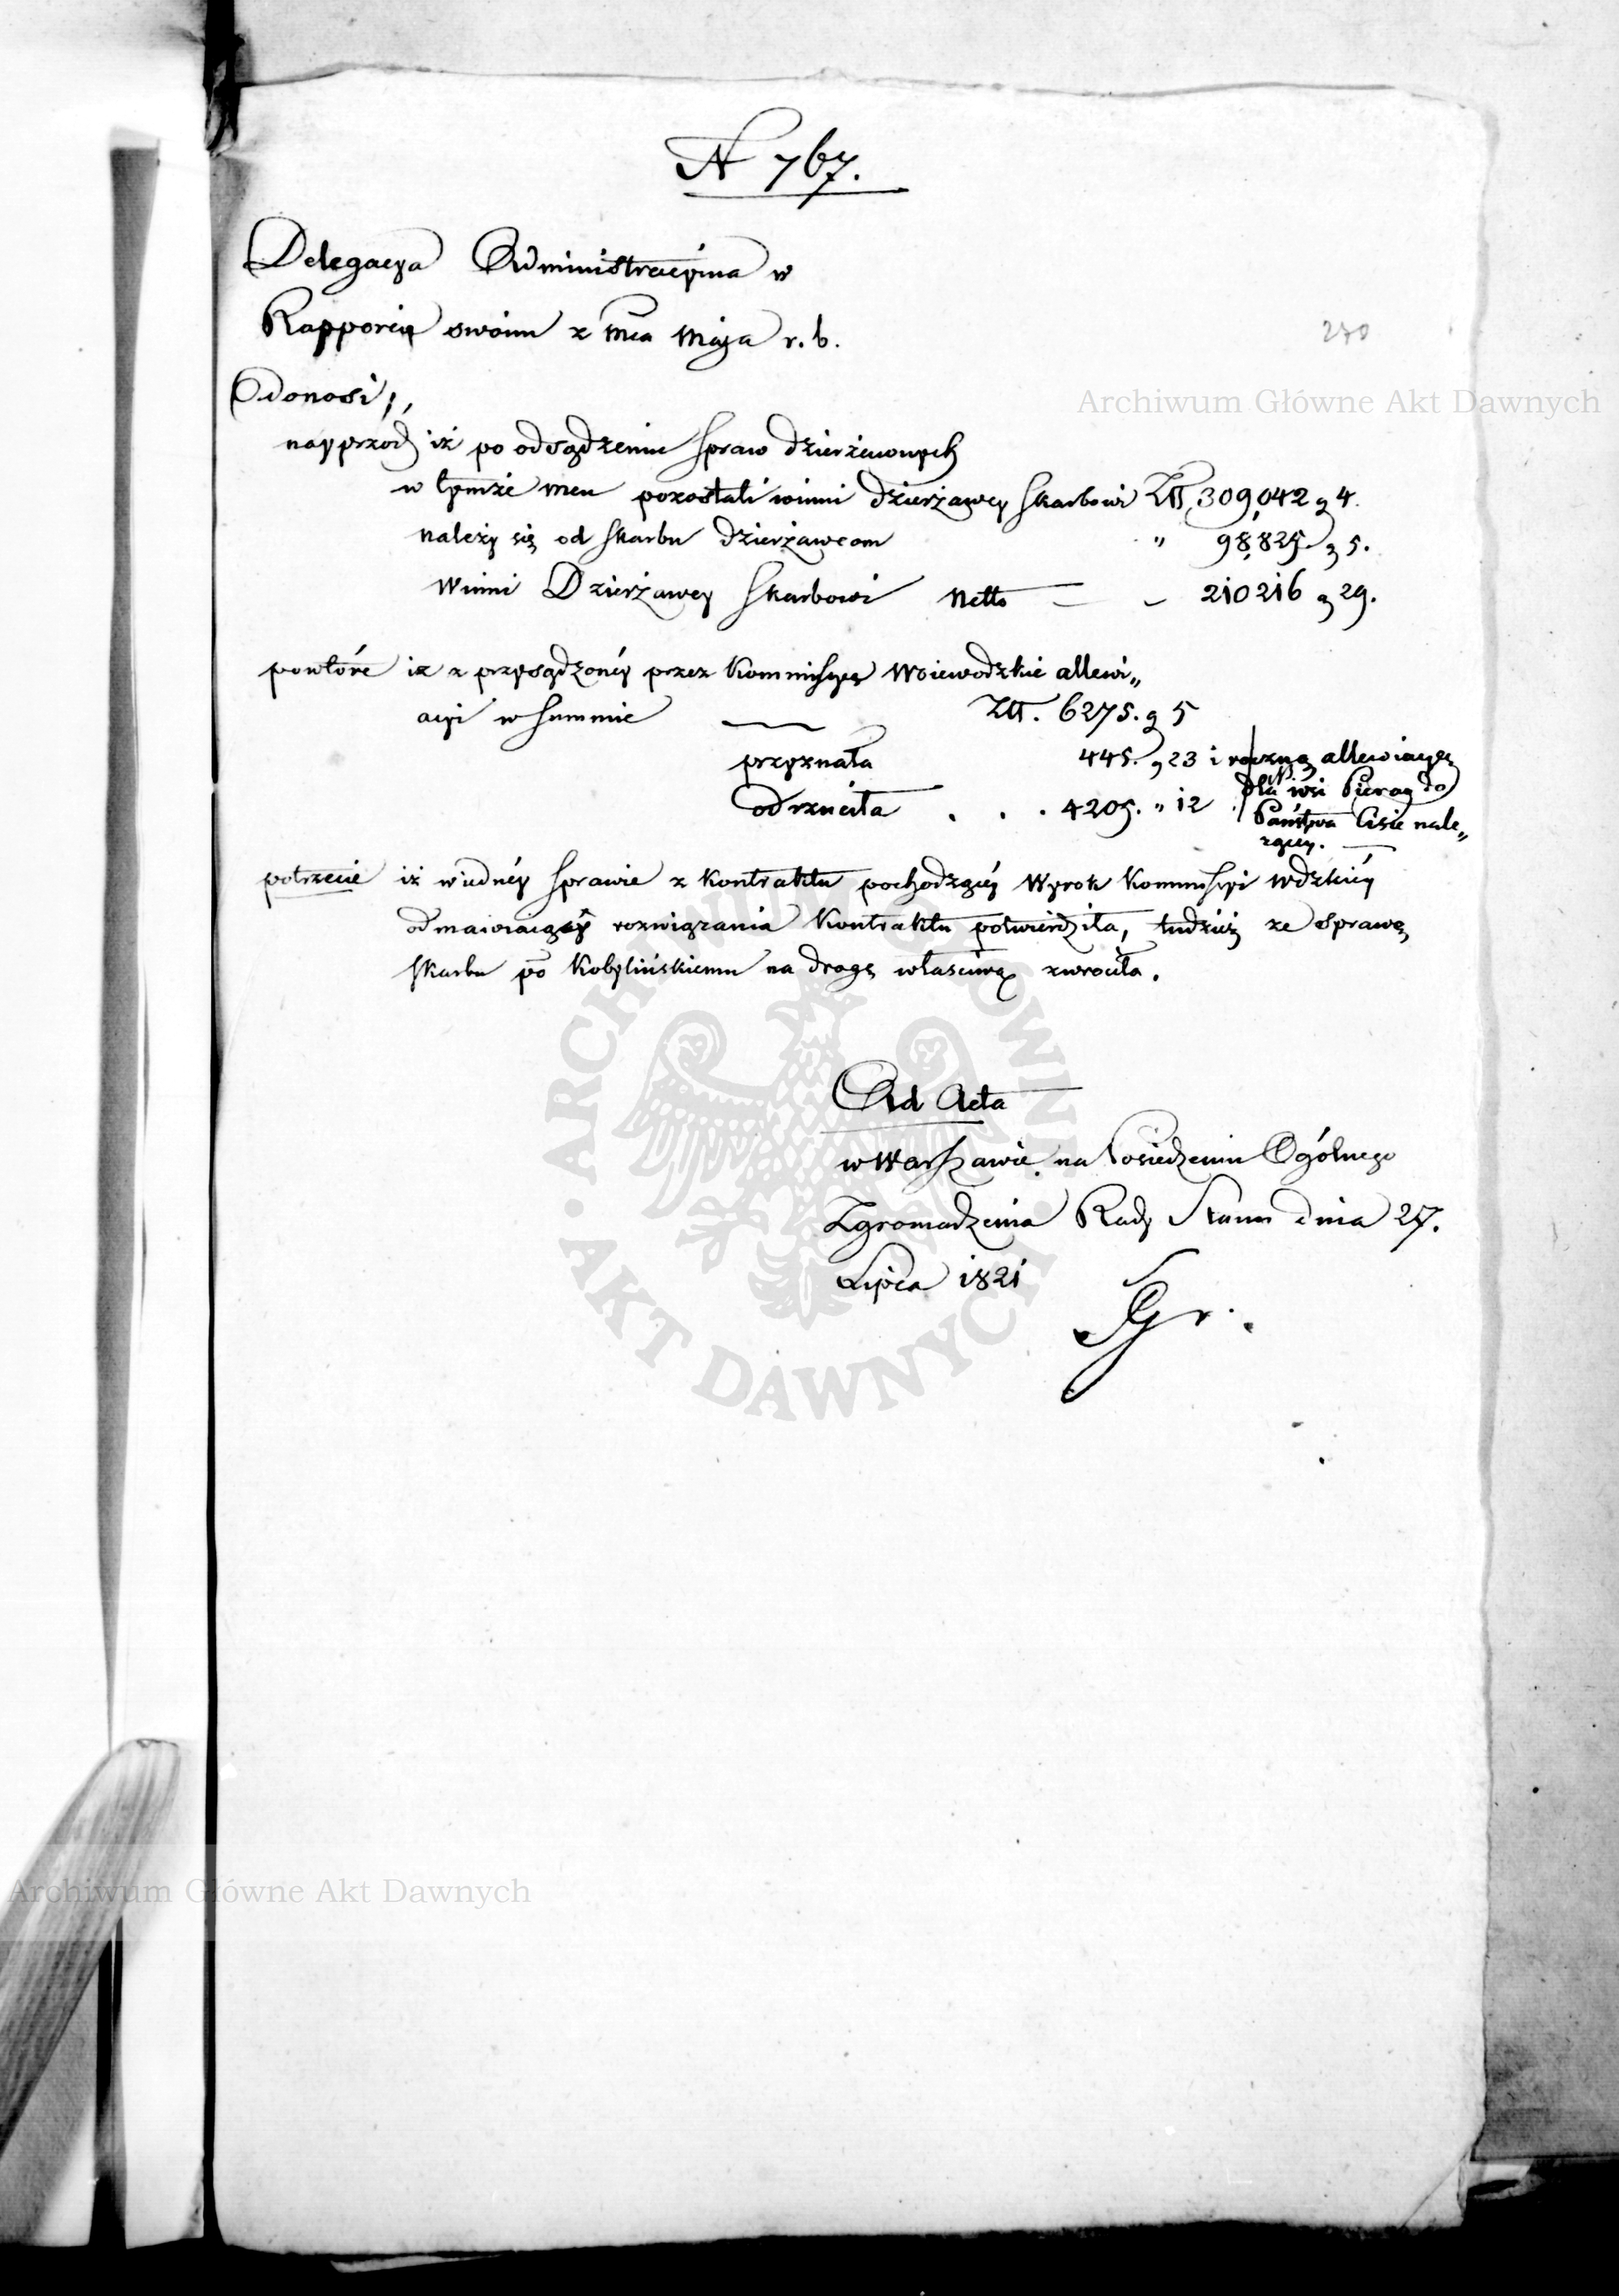 N 767.
Delegacya Administracyina w
Rapporcie swoim z mca Maja r. b.
270
Archiwum Główne Akt Dawnych
Donosi,
nayprzód iż po odsądzeniu spraw dzierżawnych
w tymże mcu pozostali winni dzierżawcy Skarbowi Złł. 309,042 g 4.
należy się od Skarbu dzierżawcom " 98,825 g 5.
Winni Dzierżawcy Skarbowi Netto — – 210216 g 29.
powtóre iż z przysądzonéy przez Kommissye Woiewodzkie allewi„
acyi w summie Złł. 6275. g 5
przyznała 445. g 23 i roczną allewiacyę
dla wsi Pierog do
odrzuciła . . . 4205. " 12
Państwa Cisie nale„
żącey.
potrzecie iż w iednéy sprawie z kontraktu pochodzącéy Wyrok Kommissyi Wdzkiéy
odmawiaiący rozwiązania Kontraktu potwierdziła, tudzież że sprawę
Skarbu po Kobylińskiemu na drogę właściwą zwróciła.
Ad Acta
w Warszawie na Posiedzeniu Ogólnego
Zgromadzenia Rady Stanu dnia 27.
Lipca 1821
ARCHIWUM GŁÓWNE AKT DAWNYCH
Archiwum Główne Akt Dawnych